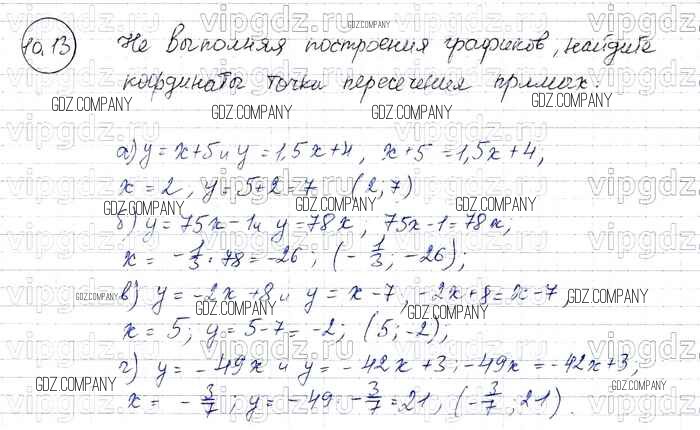 10.13 Не выполняя построения графиков, найдите
координаты точки пересечения прямых:
а) y = x+5 и y = 1,5x+4, x+5 = 1,5x+4,
x = 2, y = 5+2 = 7 (2; 7)
б) y = 75x - 1 и y = 78x, 75x - 1 = 78x;
x = -1/3 · 78 = -26; (-1/3; -26);
в) y = -2x+8 и y = x-7, -2x+8 = x-7,
x = 5; y = 5-7 = -2; (5; -2);
г) y = -49x и y = -42x+3; -49x = -42x+3;
x = -3/7; y = -49 · -3/7 = 21, (-3/7; 21).
GDZ.COMPANY
vipgdz.ru